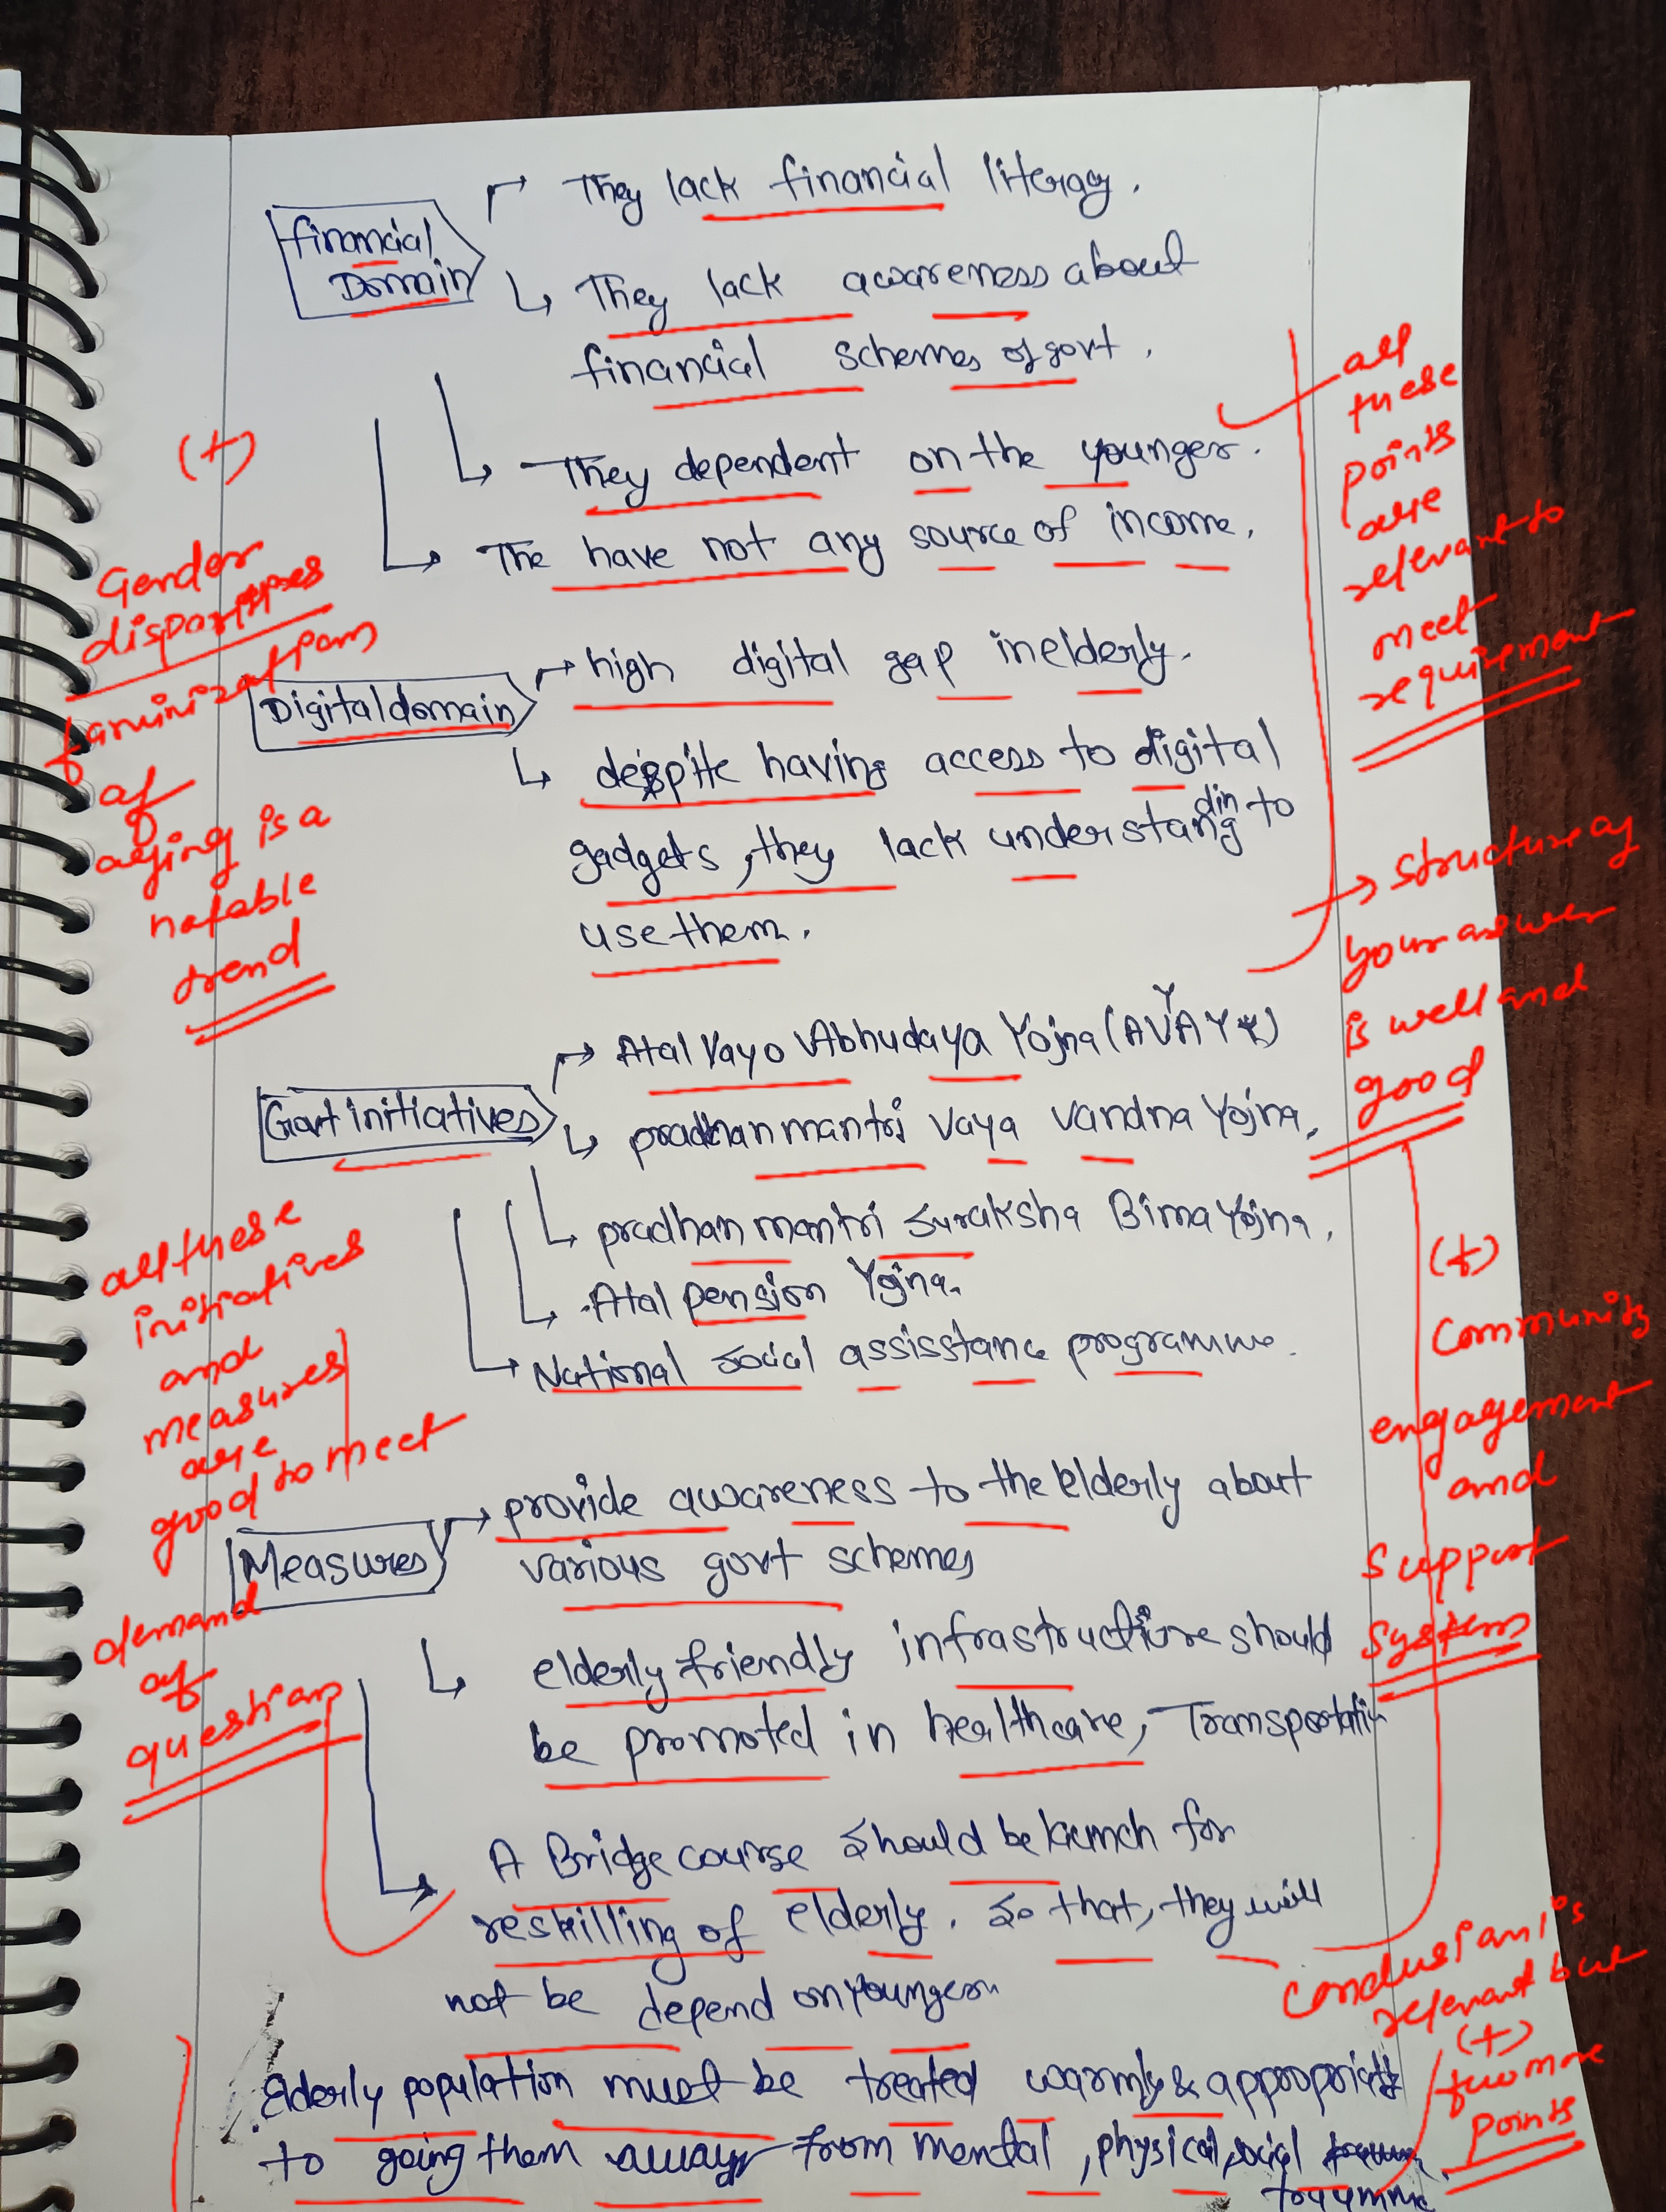 They lack financial literacy.
financial
Domain
They lack awareness about
financial schemes of govt.
They dependent on the younger.
The have not any source of income.
all
these
points
are
relevant to
meet
requirement
(+)
Gender
disparities
faminization
of
aging is a
notable
trend
Digital domain
high digital gap in elderly.
despite having access to digital
gadgets, they lack understanding to
use them.
Structure of
your answer
is well and
good
Govt initiatives
Atal Vayo Abhudaya Yojna (AVYAY)
pradhan mantri Vaya Vandna Yojna.
pradhan mantri Suraksha Bima Yojna.
Atal pension Yojna.
National social assisstance programme.
all these
initiatives
and
measures
are
good to meet
demand
of
question
(+)
Community
engagement
and
Support
System
Measures
provide awareness to the elderly about
various govt schemes
elderly friendly infrastructure should
be promoted in healthcare, Transportatin
A Bridge course should be launch for
reskilling of elderly. so that, they will
not be depend on younger
conclusion is
relevant but
(+)
two more
points
Elderly population must be treated warmly & appropriate
to going them away from mental, physical, social
traumme